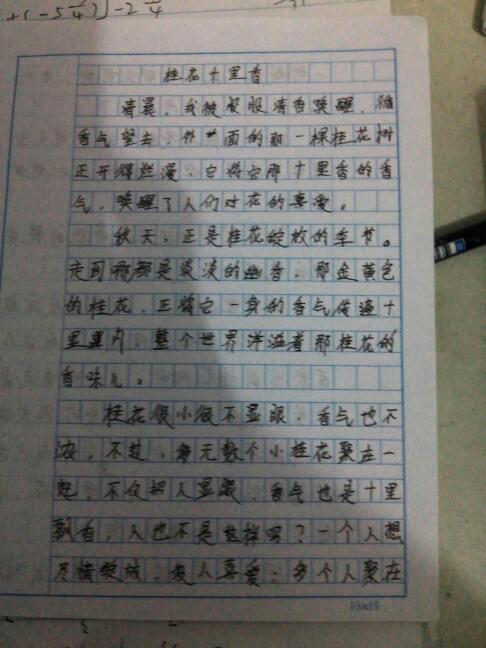 桂花十里香
清晨，我被馥馥清香唤醒，循
香气望去，外面的那一棵桂花树
正开得烂漫，它将它那十里香的香
气，唤醒了人们对花的喜爱。
秋天，正是桂花绽放的季节。
走到哪都是淡淡的幽香，那金黄色
的桂花，正将它一身的香气传遍十
里之内，整个世界洋溢着那桂花的
香味儿。
桂花很小很不显眼，香气也不
浓，不过，多无数个小桂花聚在一
起，不仅招人显眼，香气也是十里
飘香，人也不是这样吗？一个人想
尽情绽放，受人喜爱；多个人聚在
15x15